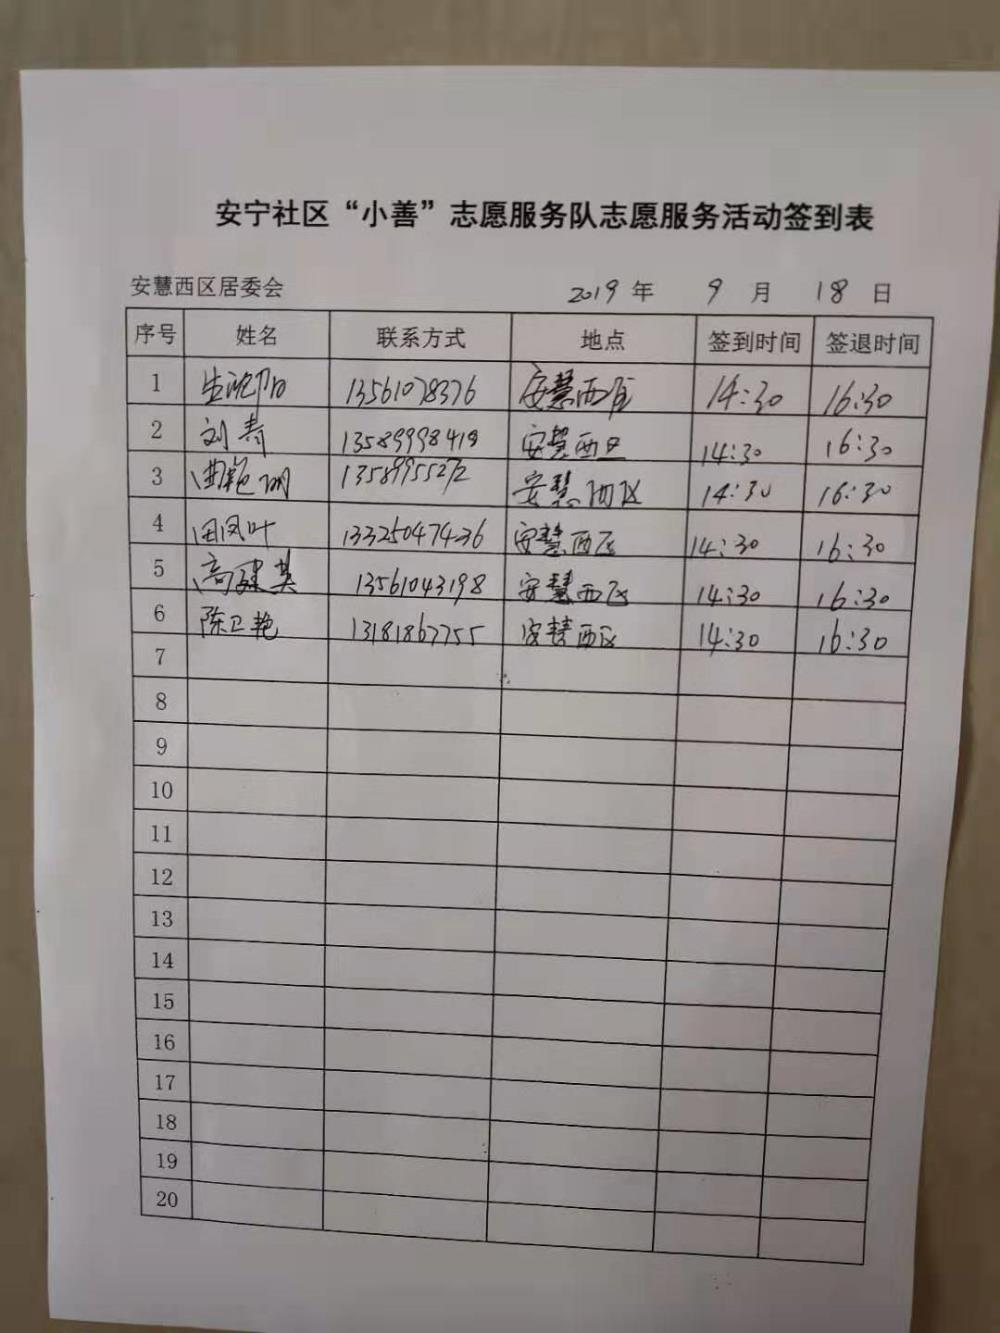 安宁社区“小善”志愿服务队志愿服务活动签到表
安慧西区居委会 2019 年 9 月 18 日
序号 姓名 联系方式 地点 签到时间 签退时间
1 13561078376 安慧西区 14:30 16:30
2 刘青 13589998419 安慧西区 14:30 16:30
3 曲艳明 13589955272 安慧西区 14:30 16:30
4 田凤叶 13325047436 安慧西区 14:30 16:30
5 高建英 13561043198 安慧西区 14:30 16:30
6 陈卫艳 13181867755 安慧西区 14:30 16:30
7
8
9
10
11
12
13
14
15
16
17
18
19
20